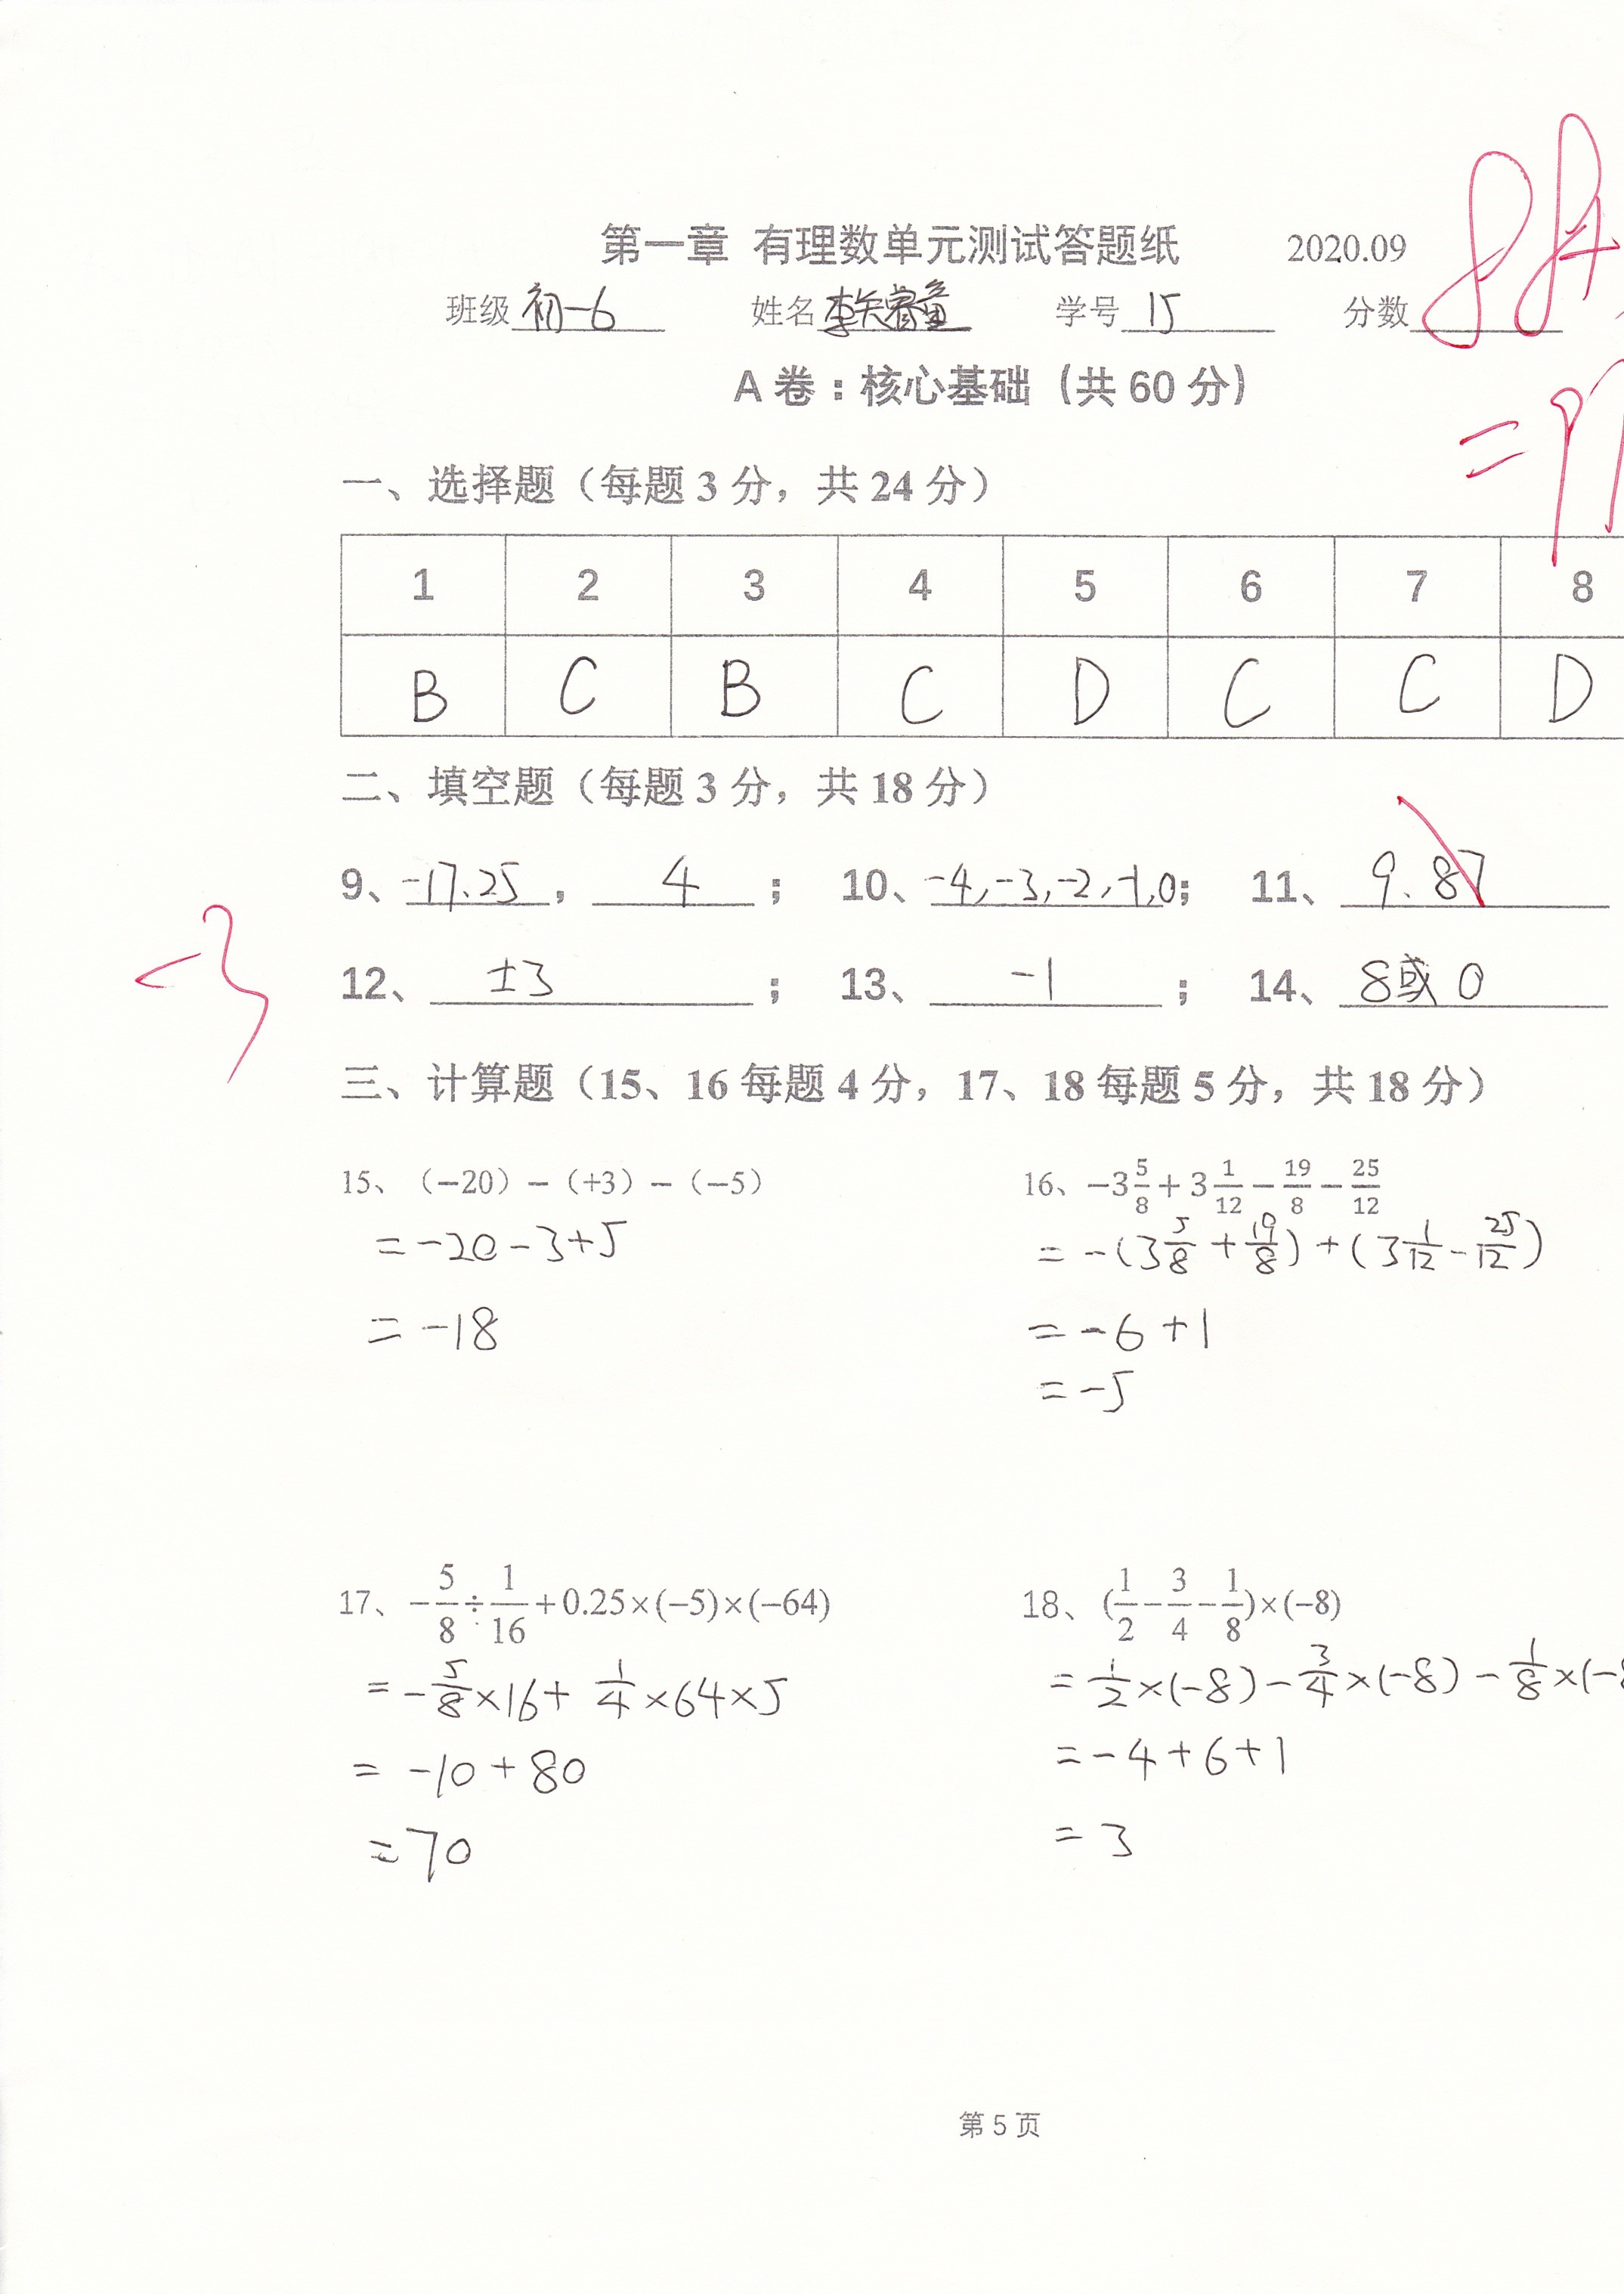 第一章 有理数单元测试答题纸 2020.09
班级 初一6 姓名 学号 15 分数
A 卷：核心基础（共 60 分）
一、选择题（每题 3 分，共 24 分）
1 2 3 4 5 6 7 8
B C B C D C C D
二、填空题（每题 3 分，共 18 分）
9、-17.25，4； 10、-4,-3,-2,-1,0； 11、9.87
-3
12、±3； 13、-1； 14、8或0
三、计算题（15、16 每题 4 分，17、18 每题 5 分，共 18 分）
15、（−20）−（+3）−（−5） 16、−3 5/8 + 3 1/12 − 19/8 − 25/12
= -20-3+5 = -(3 5/8 + 19/8) + (3 1/12 - 25/12)
= -18 = -6+1
= -5
17、−5/8÷1/16+0.25×(−5)×(−64) 18、(1/2−3/4−1/8)×(−8)
= -5/8×16+ 1/4×64×5 = 1/2×(-8)-3/4×(-8)-1/8×(-8
= -10+80 = -4+6+1
= 70 = 3
第 5 页